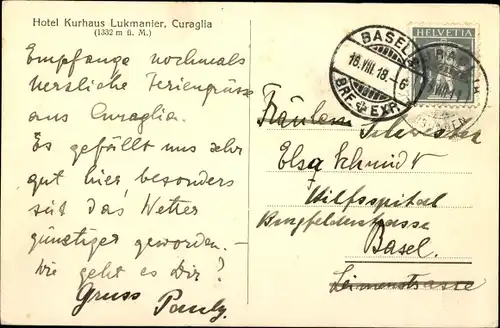 Hotel Kurhaus Lukmanier, Curaglia
(1332 m ü. M.)
Empfange nochmals
herzliche Feriengrüsse
aus Curaglia.
Es gefällt uns sehr
gut hier, besonders
seit das Wetter
günstiger geworden. –
Wie geht es Dir?
Gruss Pauly.
HELVETIA
BASEL
16.VIII.18.-6
BRF. EXP.
Fräulein Schwester
Elsa Schmidt
Hilfsspital
Burgfelderstrasse
Basel.
Leimenstrasse